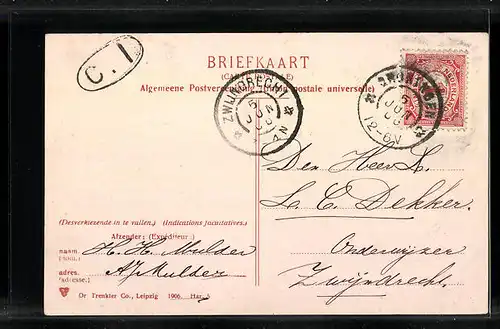 C. 1
BRIEFKAART
(CARTE POSTALE)
Algemeene Postvereeniging (Union postale universelle)
ZWIJNDRECHT
5 JUN 06
AN
GRONINGEN
5 JUN 06
12-6N
Den Heer
L. C. Dekker.
Onderwijzer
Zwijndrecht.
(Desverkiezende in te vullen.) (Indications facultatives.)
Afzender: (Expéditeur:)
naam H. H. Mulder
(nom.)
adres. A/Mulder
(adresse.)
Dr Trenkler Co., Leipzig 1906. Har. 5